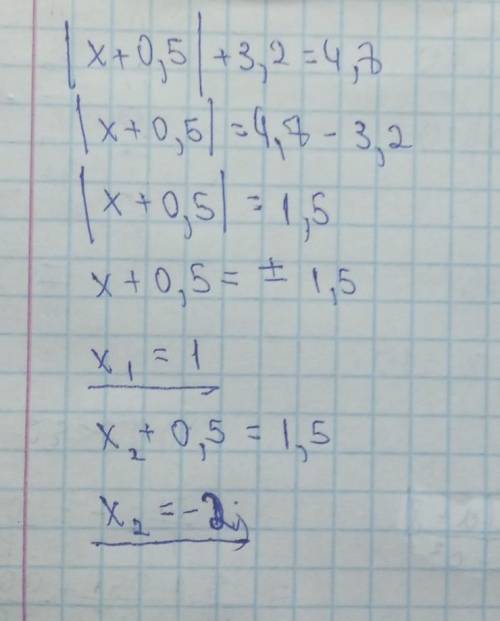 |x+0,5|+3,2=4,7
|x+0,5|=4,7-3,2
|x+0,5|=1,5
x+0,5=±1,5
x₁=1
x₂+0,5=1,5
x₂=-2;